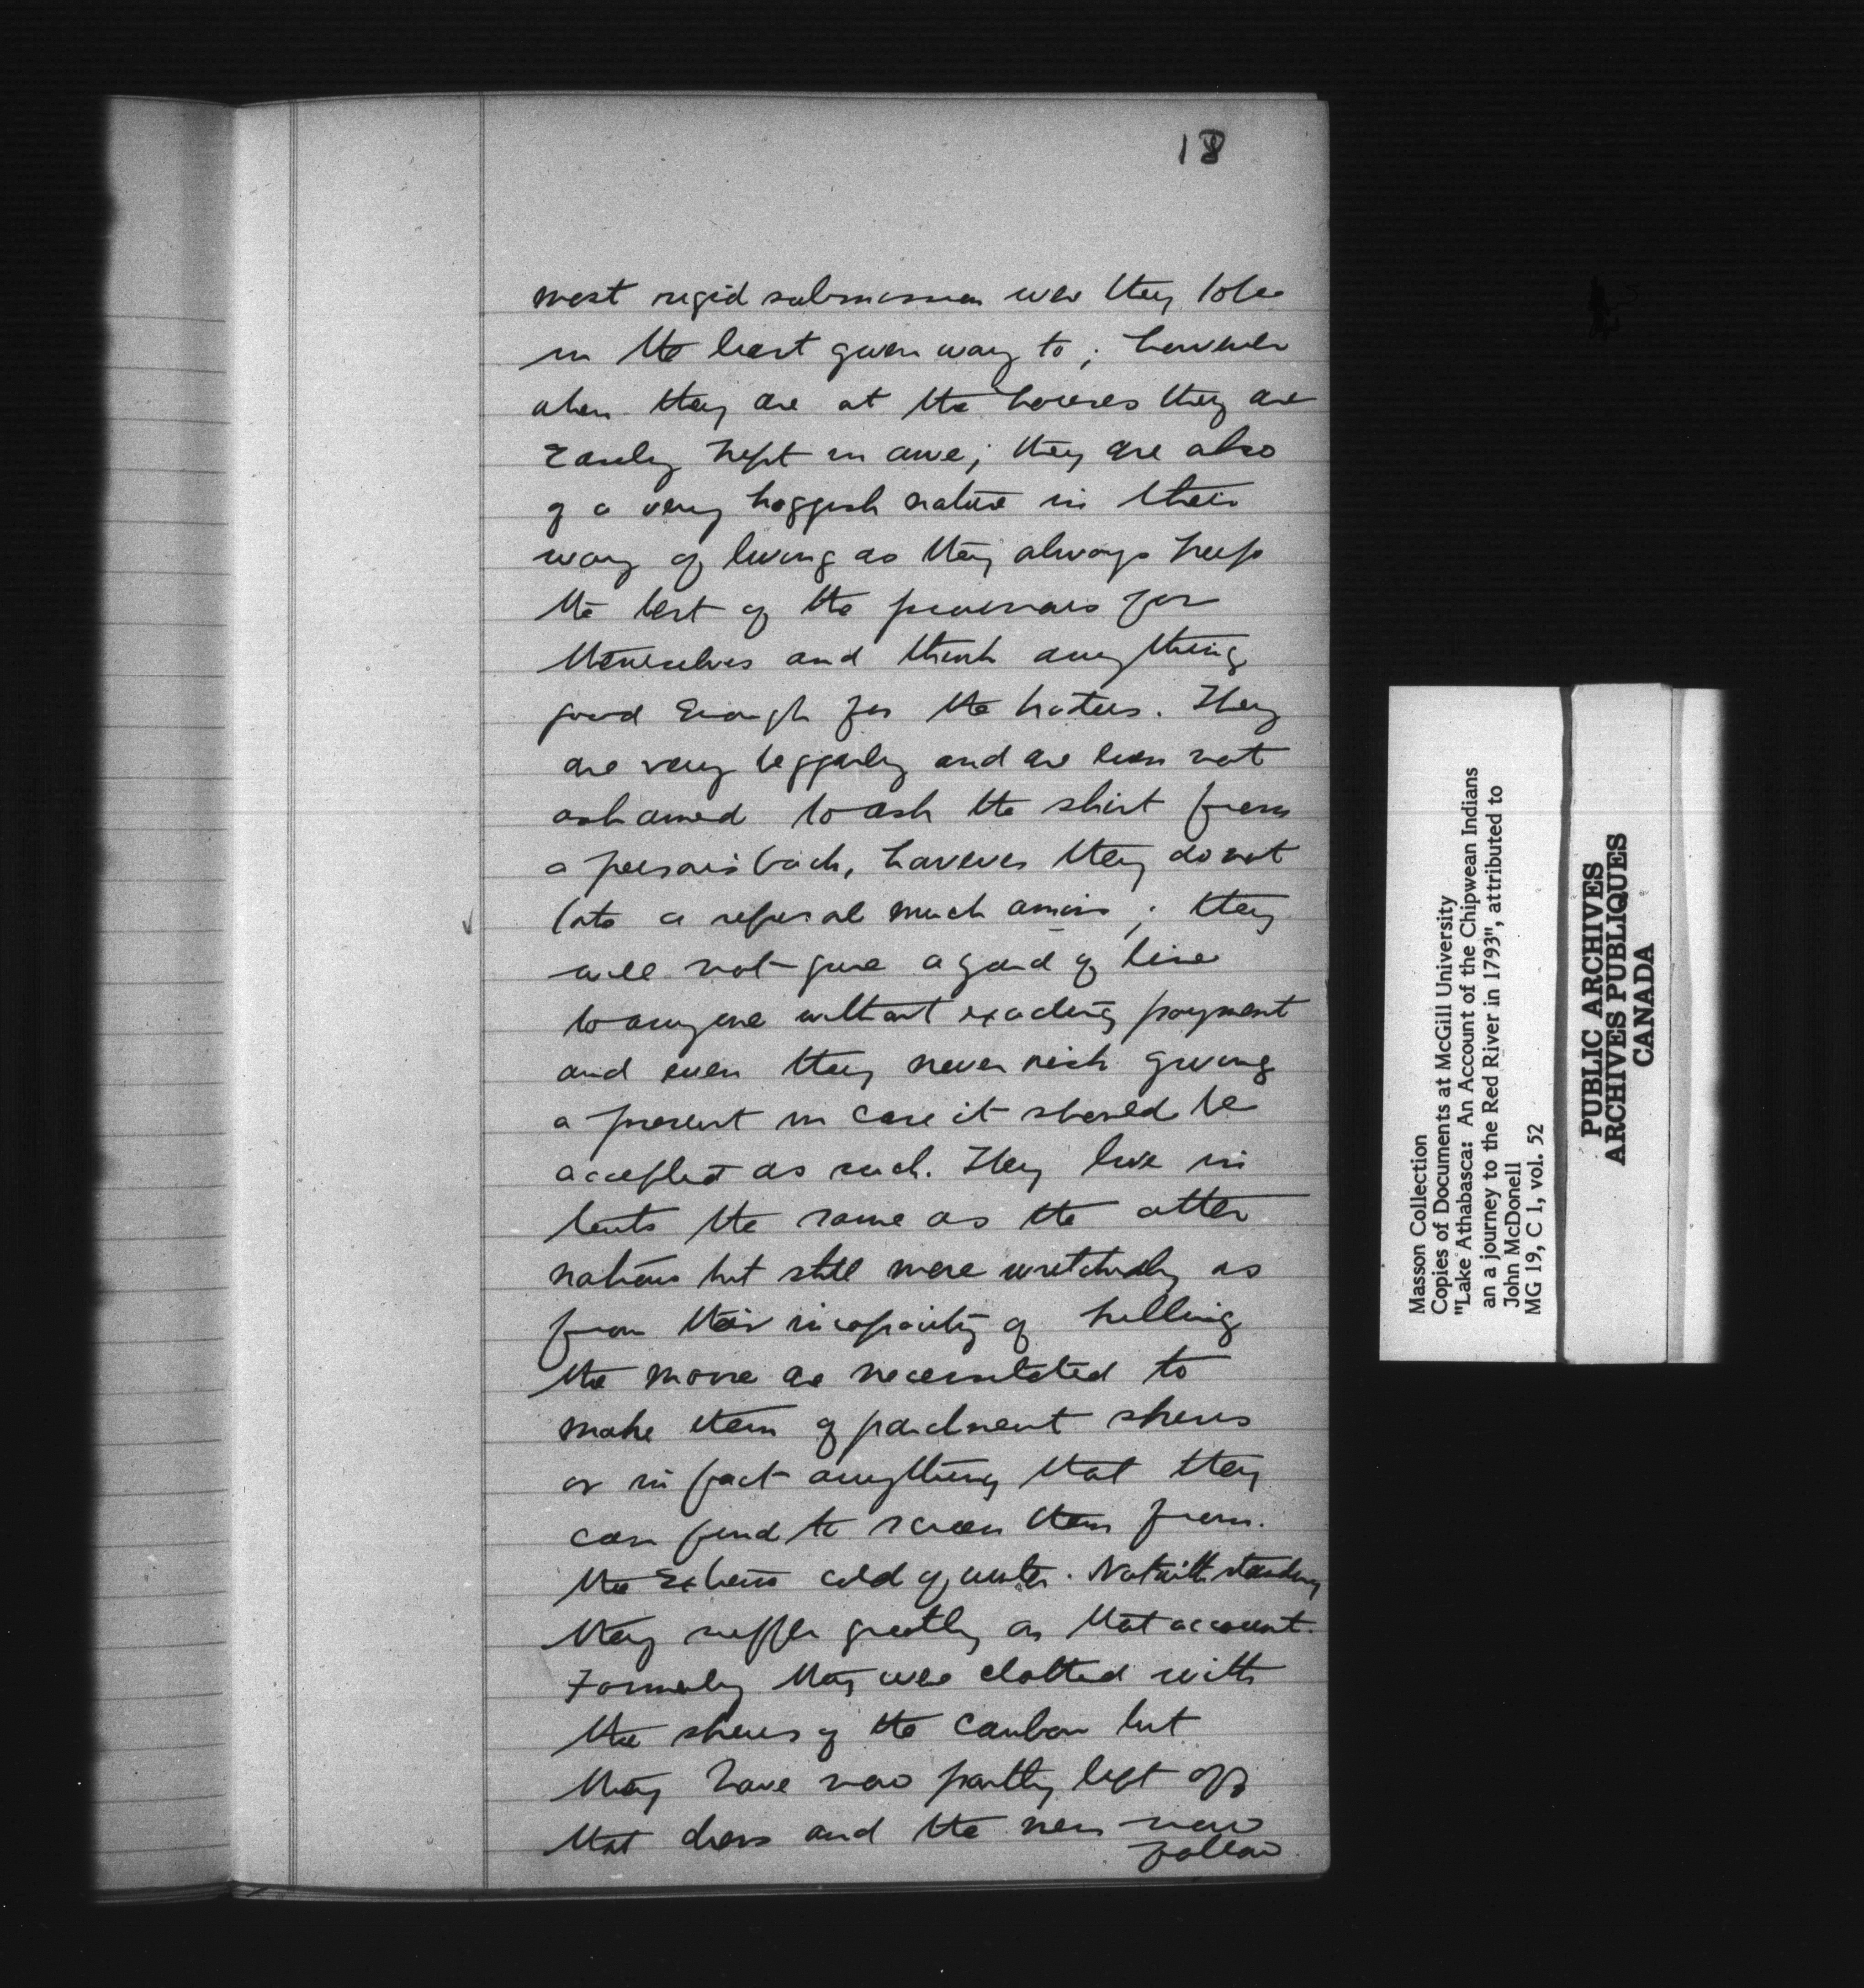 18
most rigid submission were they to be
in the least given way to; however
when they are at the houses they are
Easily kept in awe; they are also
of a very hoggish nature in their
way of living as they always keep
the best of the provisions for
themselves and think any thing
good Enough for the . They
are very beggarly and are even not
ashamed to ask the shirt from
a person's back, however they do not
take a refusal much amiss; they
will not give a yard of line
to anyone without exacting payment
and even they never risk giving
a present in case it should be
accepted as such. They live in
tents the same as the other
nations but still more wretchedly as
from their incapacity of killing
the moose are necessitated to
make them of parchment skins
or in fact anything that they
can find to screen them from
the Extreme cold of winter. Notwithstanding
they suffer greatly on that account.
Formerly they were clothed with
the skins of the Caribou but
they have now partly left off
that dress and the men now
follow
Masson Collection
Copies of Documents at McGill University
"Lake Athabasca: An Account of the Chipwean Indians
an a journey to the Red River in 1793", attributed to
John McDonell
MG 19, C 1, vol. 52
PUBLIC ARCHIVES
ARCHIVES PUBLIQUES
CANADA